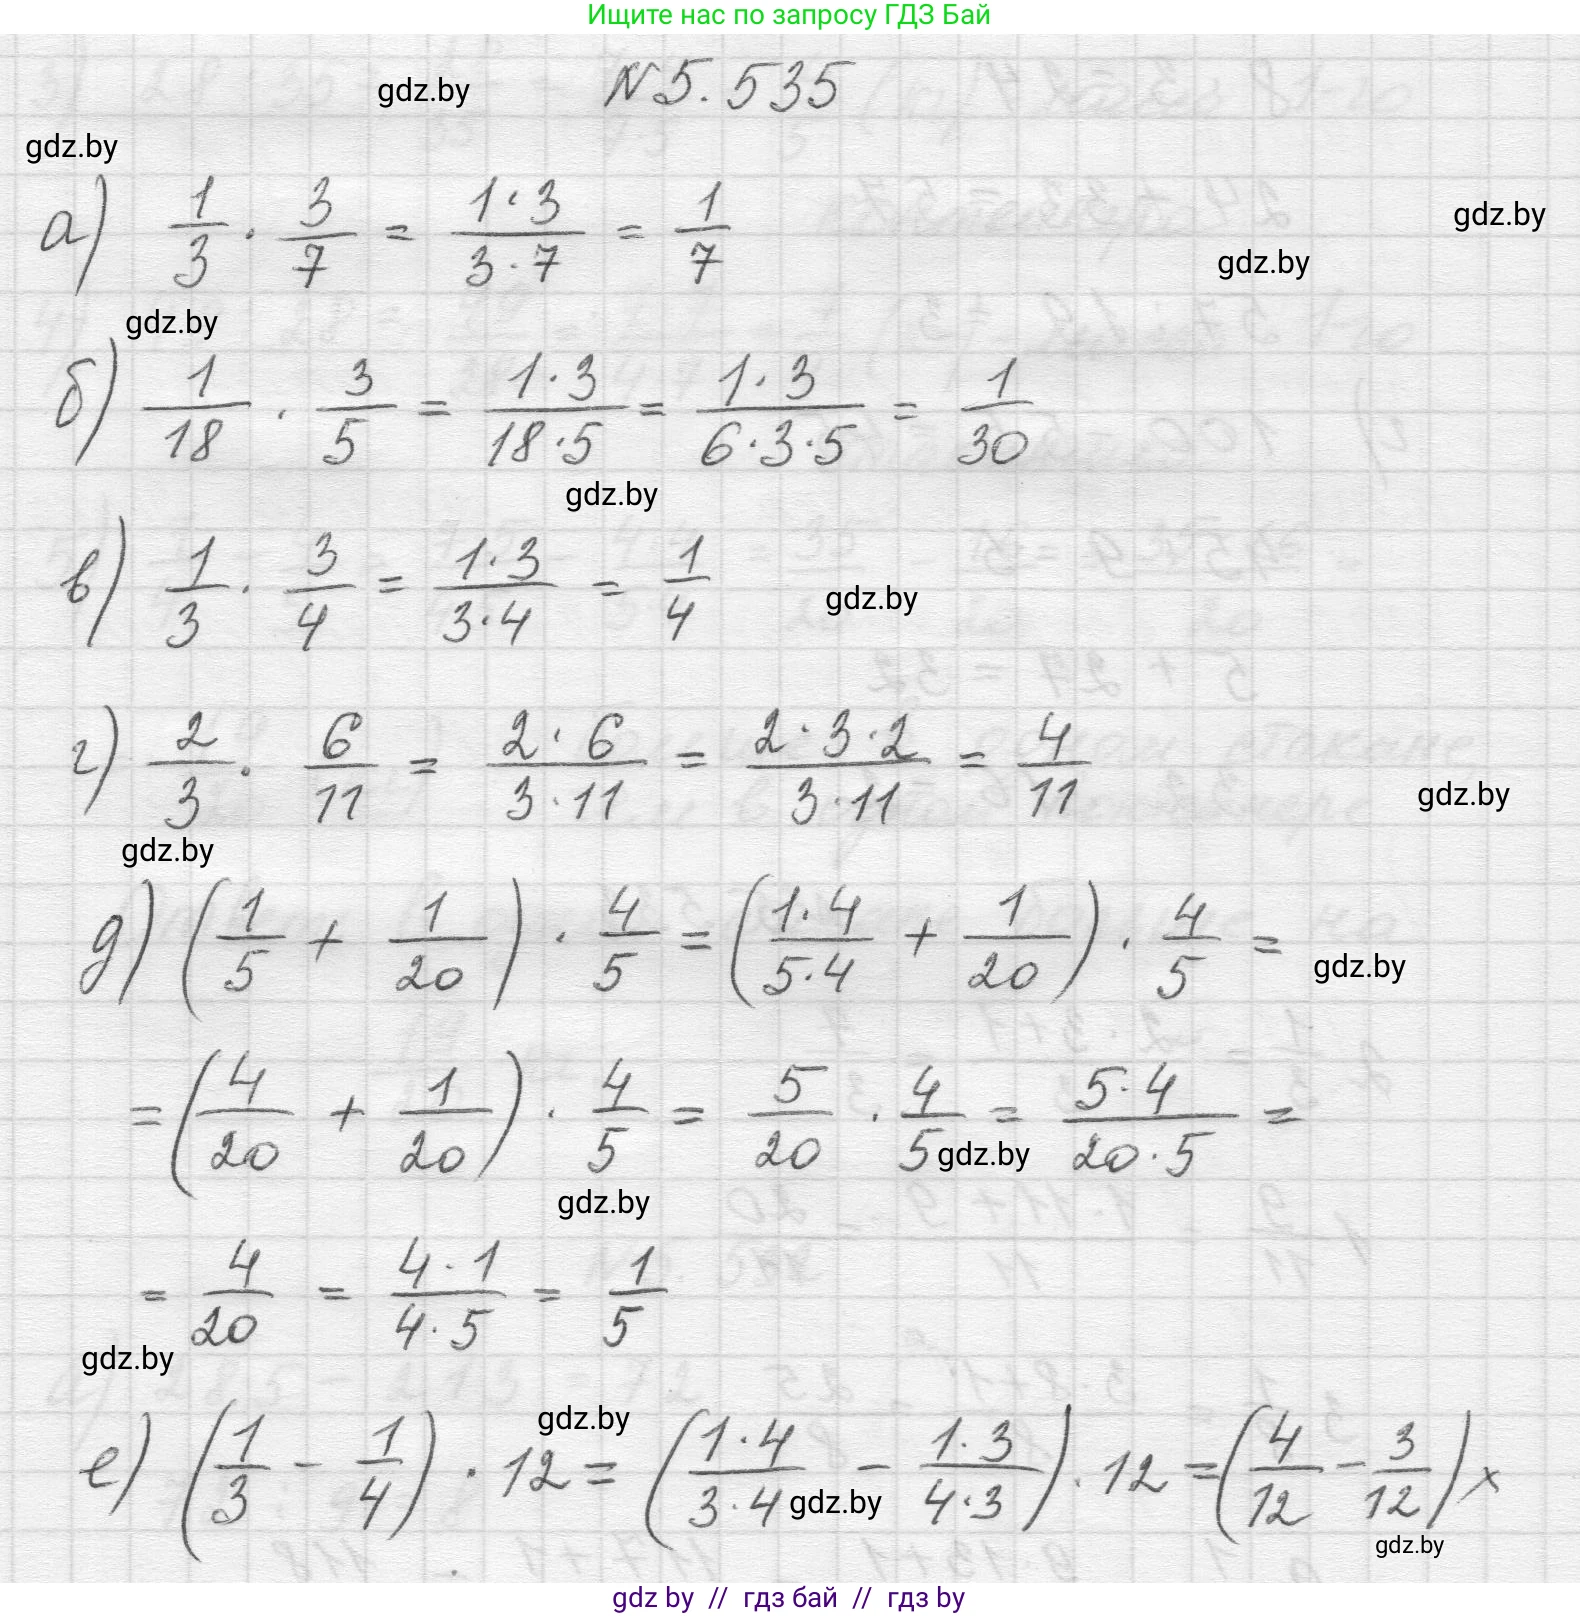 Ищите нас по запросу ГДЗ Бай
gdz.by № 5.535
gdz.by
а) 1/3 · 3/7 = (1·3)/(3·7) = 1/7
gdz.by
gdz.by
gdz.by
б) 1/18 · 3/5 = (1·3)/(18·5) = (1·3)/(6·3·5) = 1/30
gdz.by
в) 1/3 · 3/4 = (1·3)/(3·4) = 1/4
gdz.by
г) 2/3 · 6/11 = (2·6)/(3·11) = (2·3·2)/(3·11) = 4/11
gdz.by
gdz.by
д) (1/5 + 1/20) · 4/5 = ((1·4)/(5·4) + 1/20) · 4/5 =
gdz.by
= (4/20 + 1/20) · 4/5 = 5/20 · 4/5 = (5·4)/(20·5) =
gdz.by
gdz.by
= 4/20 = (4·1)/(4·5) = 1/5
gdz.by
gdz.by
е) (1/3 − 1/4) · 12 = ((1·4)/(3·4) − (1·3)/(4·3)) · 12 = (4/12 − 3/12) ×
gdz.by
gdz.by
gdz by // гдз бай // гдз by